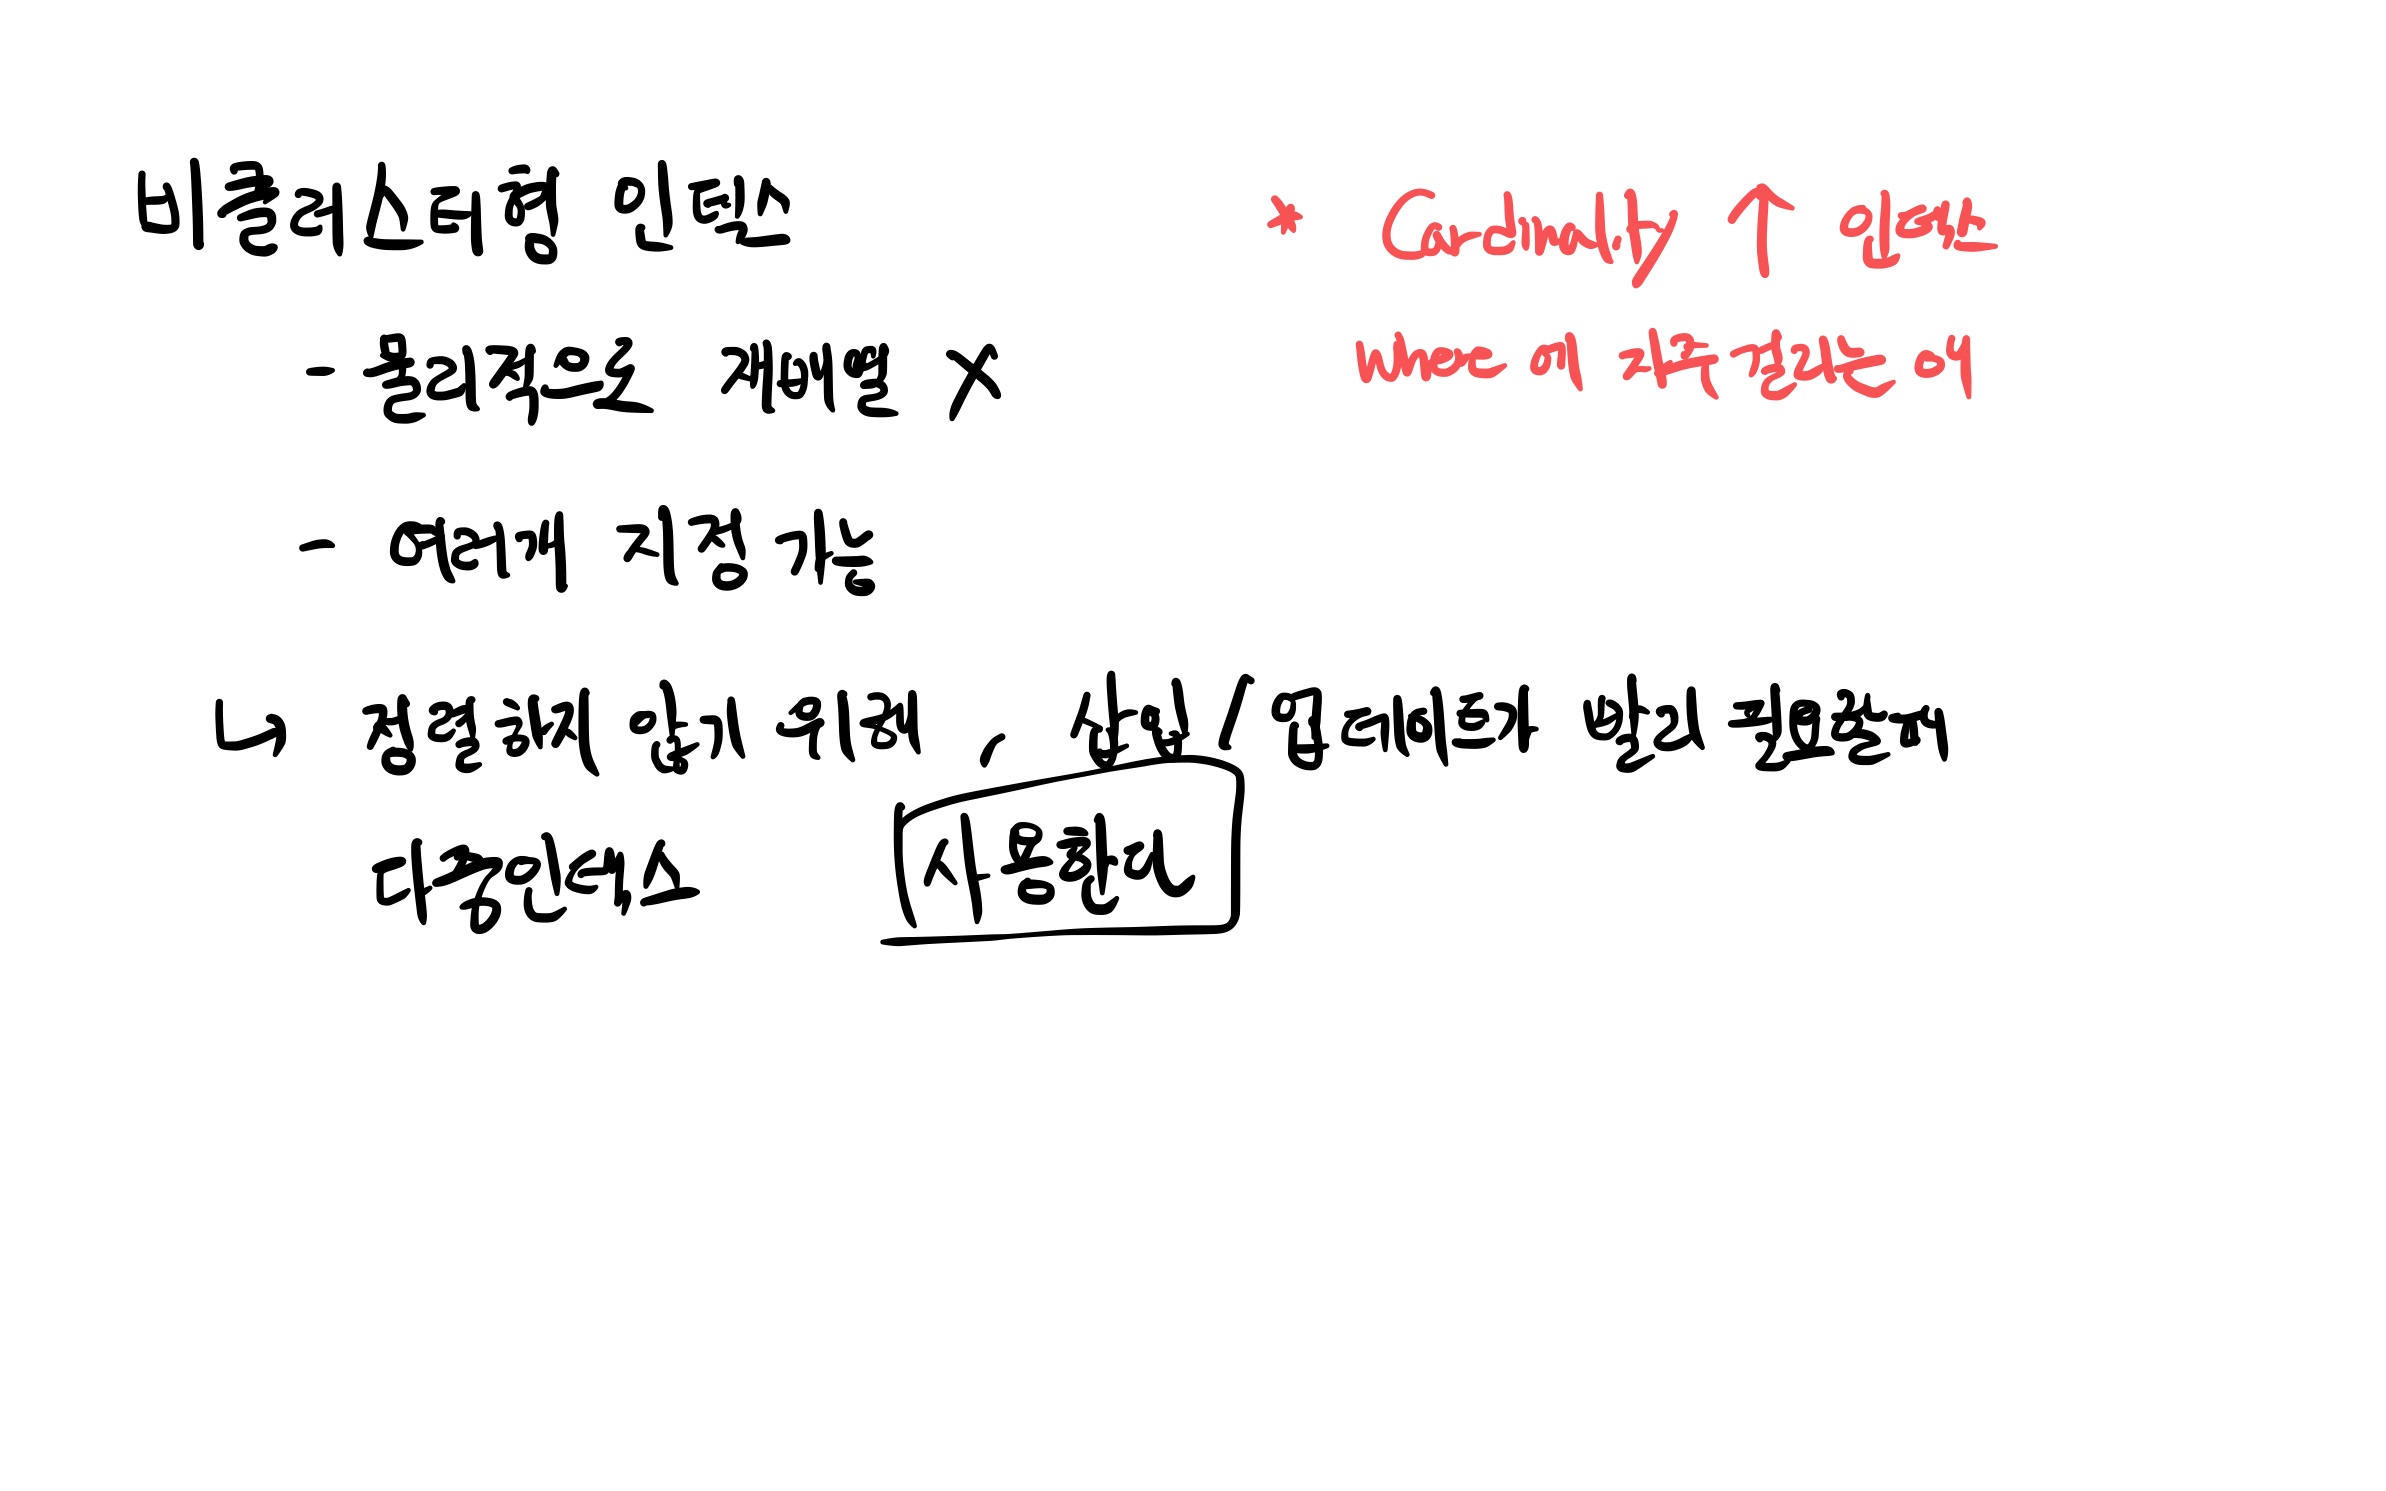 비클러스터형 인덱스
- 물리적으로 재배열 X
- 여러개 지정 가능
↳ 정렬하지 않기 위해, 삽입/업데이트가 많이 필요할때
다중인덱스 사용한다
* Cardinality ↑ 인덱스
where 에 자주 걸리는 애